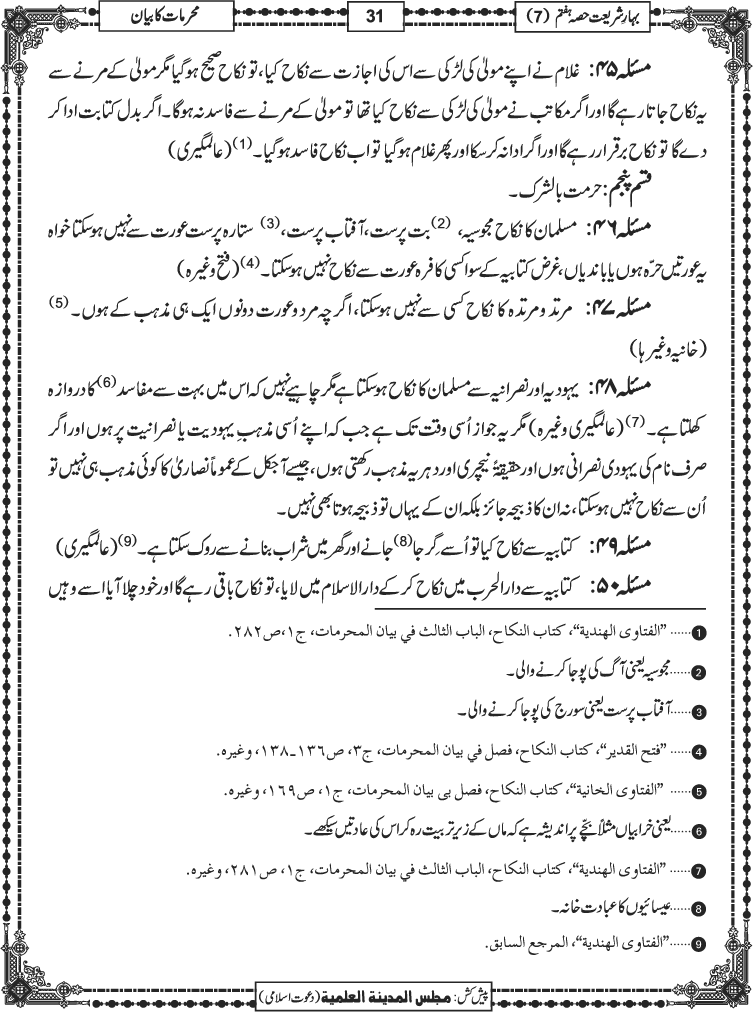 بہارِ شریعت حصہ ہفتم (7)
31
محرمات کا بیان
مسئلہ ۴۵: غلام نے اپنے مولیٰ کی لڑکی سے اس کی اجازت سے نکاح کیا، تو نکاح صحیح ہوگیا مگر مولیٰ کے مرنے سے
یہ نکاح جاتا رہے گا اور اگر مکاتب نے مولیٰ کی لڑکی سے نکاح کیا تھا تو مولیٰ کے مرنے سے فاسد نہ ہوگا۔ اگر بدل کتابت ادا کر
دے گا تو نکاح برقرار رہے گا اور اگر ادا نہ کرسکا اور پھر غلام ہوگیا تو اب نکاح فاسد ہوگیا۔ (1) (عالمگیری)
قسم پنجم: حرمت بالشرک۔
مسئلہ ۴۶: مسلمان کا نکاح مجوسیہ، (2) بت پرست، آفتاب پرست، (3) ستارہ پرست عورت سے نہیں ہوسکتا خواہ
یہ عورتیں حرّہ ہوں یا باندیاں، غرض کتابیہ کے سوا کسی کافرہ عورت سے نکاح نہیں ہوسکتا۔ (4) (فتح وغیرہ)
مسئلہ ۴۷: مرتد و مرتدہ کا نکاح کسی سے نہیں ہوسکتا، اگرچہ مرد و عورت دونوں ایک ہی مذہب کے ہوں۔ (5)
(خانیہ وغیرہا)
مسئلہ ۴۸: یہودیہ اور نصرانیہ سے مسلمان کا نکاح ہوسکتا ہے مگر چاہیے نہیں کہ اس میں بہت سے مفاسد (6) کا دروازہ
کھلتا ہے۔ (7) (عالمگیری وغیرہ) مگر یہ جواز اُسی وقت تک ہے جب کہ اپنے اُسی مذہبِ یہودیت یا نصرانیت پر ہوں اور اگر
صرف نام کی یہودی نصرانی ہوں اور حقیقۃً نیچری اور دہریہ مذہب رکھتی ہوں، جیسے آجکل کے عموماً نصاریٰ کا کوئی مذہب ہی نہیں تو
اُن سے نکاح نہیں ہوسکتا، نہ ان کا ذبیحہ جائز بلکہ ان کے یہاں تو ذبیحہ ہوتا بھی نہیں۔
مسئلہ ۴۹: کتابیہ سے نکاح کیا تو اُسے گرجا (8) جانے اور گھر میں شراب بنانے سے روک سکتا ہے۔ (9) (عالمگیری)
مسئلہ ۵۰: کتابیہ سے دارالحرب میں نکاح کرکے دارالاسلام میں لایا، تو نکاح باقی رہے گا اور خود چلا آیا اسے وہیں
1 ...... ”الفتاوی الهندية“، كتاب النكاح، الباب الثالث في بيان المحرمات، ج١، ص٢٨٢.
2 ...... مجوسیہ یعنی آگ کی پوجا کرنے والی۔
3 ...... آفتاب پرست یعنی سورج کی پوجا کرنے والی۔
4 ...... ”فتح القدير“، كتاب النكاح، فصل في بيان المحرمات، ج٣، ص١٣٦ـ١٣٨، وغيره.
5 ...... ”الفتاوى الخانية“، كتاب النكاح، فصل بی بيان المحرمات، ج١، ص١٦٩، وغيره.
6 ...... یعنی خرابیاں مثلاً بچے پر اندیشہ ہے کہ ماں کے زیرِ تربیت رہ کر اس کی عادتیں سیکھے۔
7 ...... ”الفتاوی الهندية“، كتاب النكاح، الباب الثالث في بيان المحرمات، ج١، ص٢٨١، وغيره.
8 ...... عیسائیوں کا عبادت خانہ۔
9 ...... ”الفتاوی الهندية“، المرجع السابق.
پیش کش: مجلس المدينة العلمية (دعوت اسلامی)